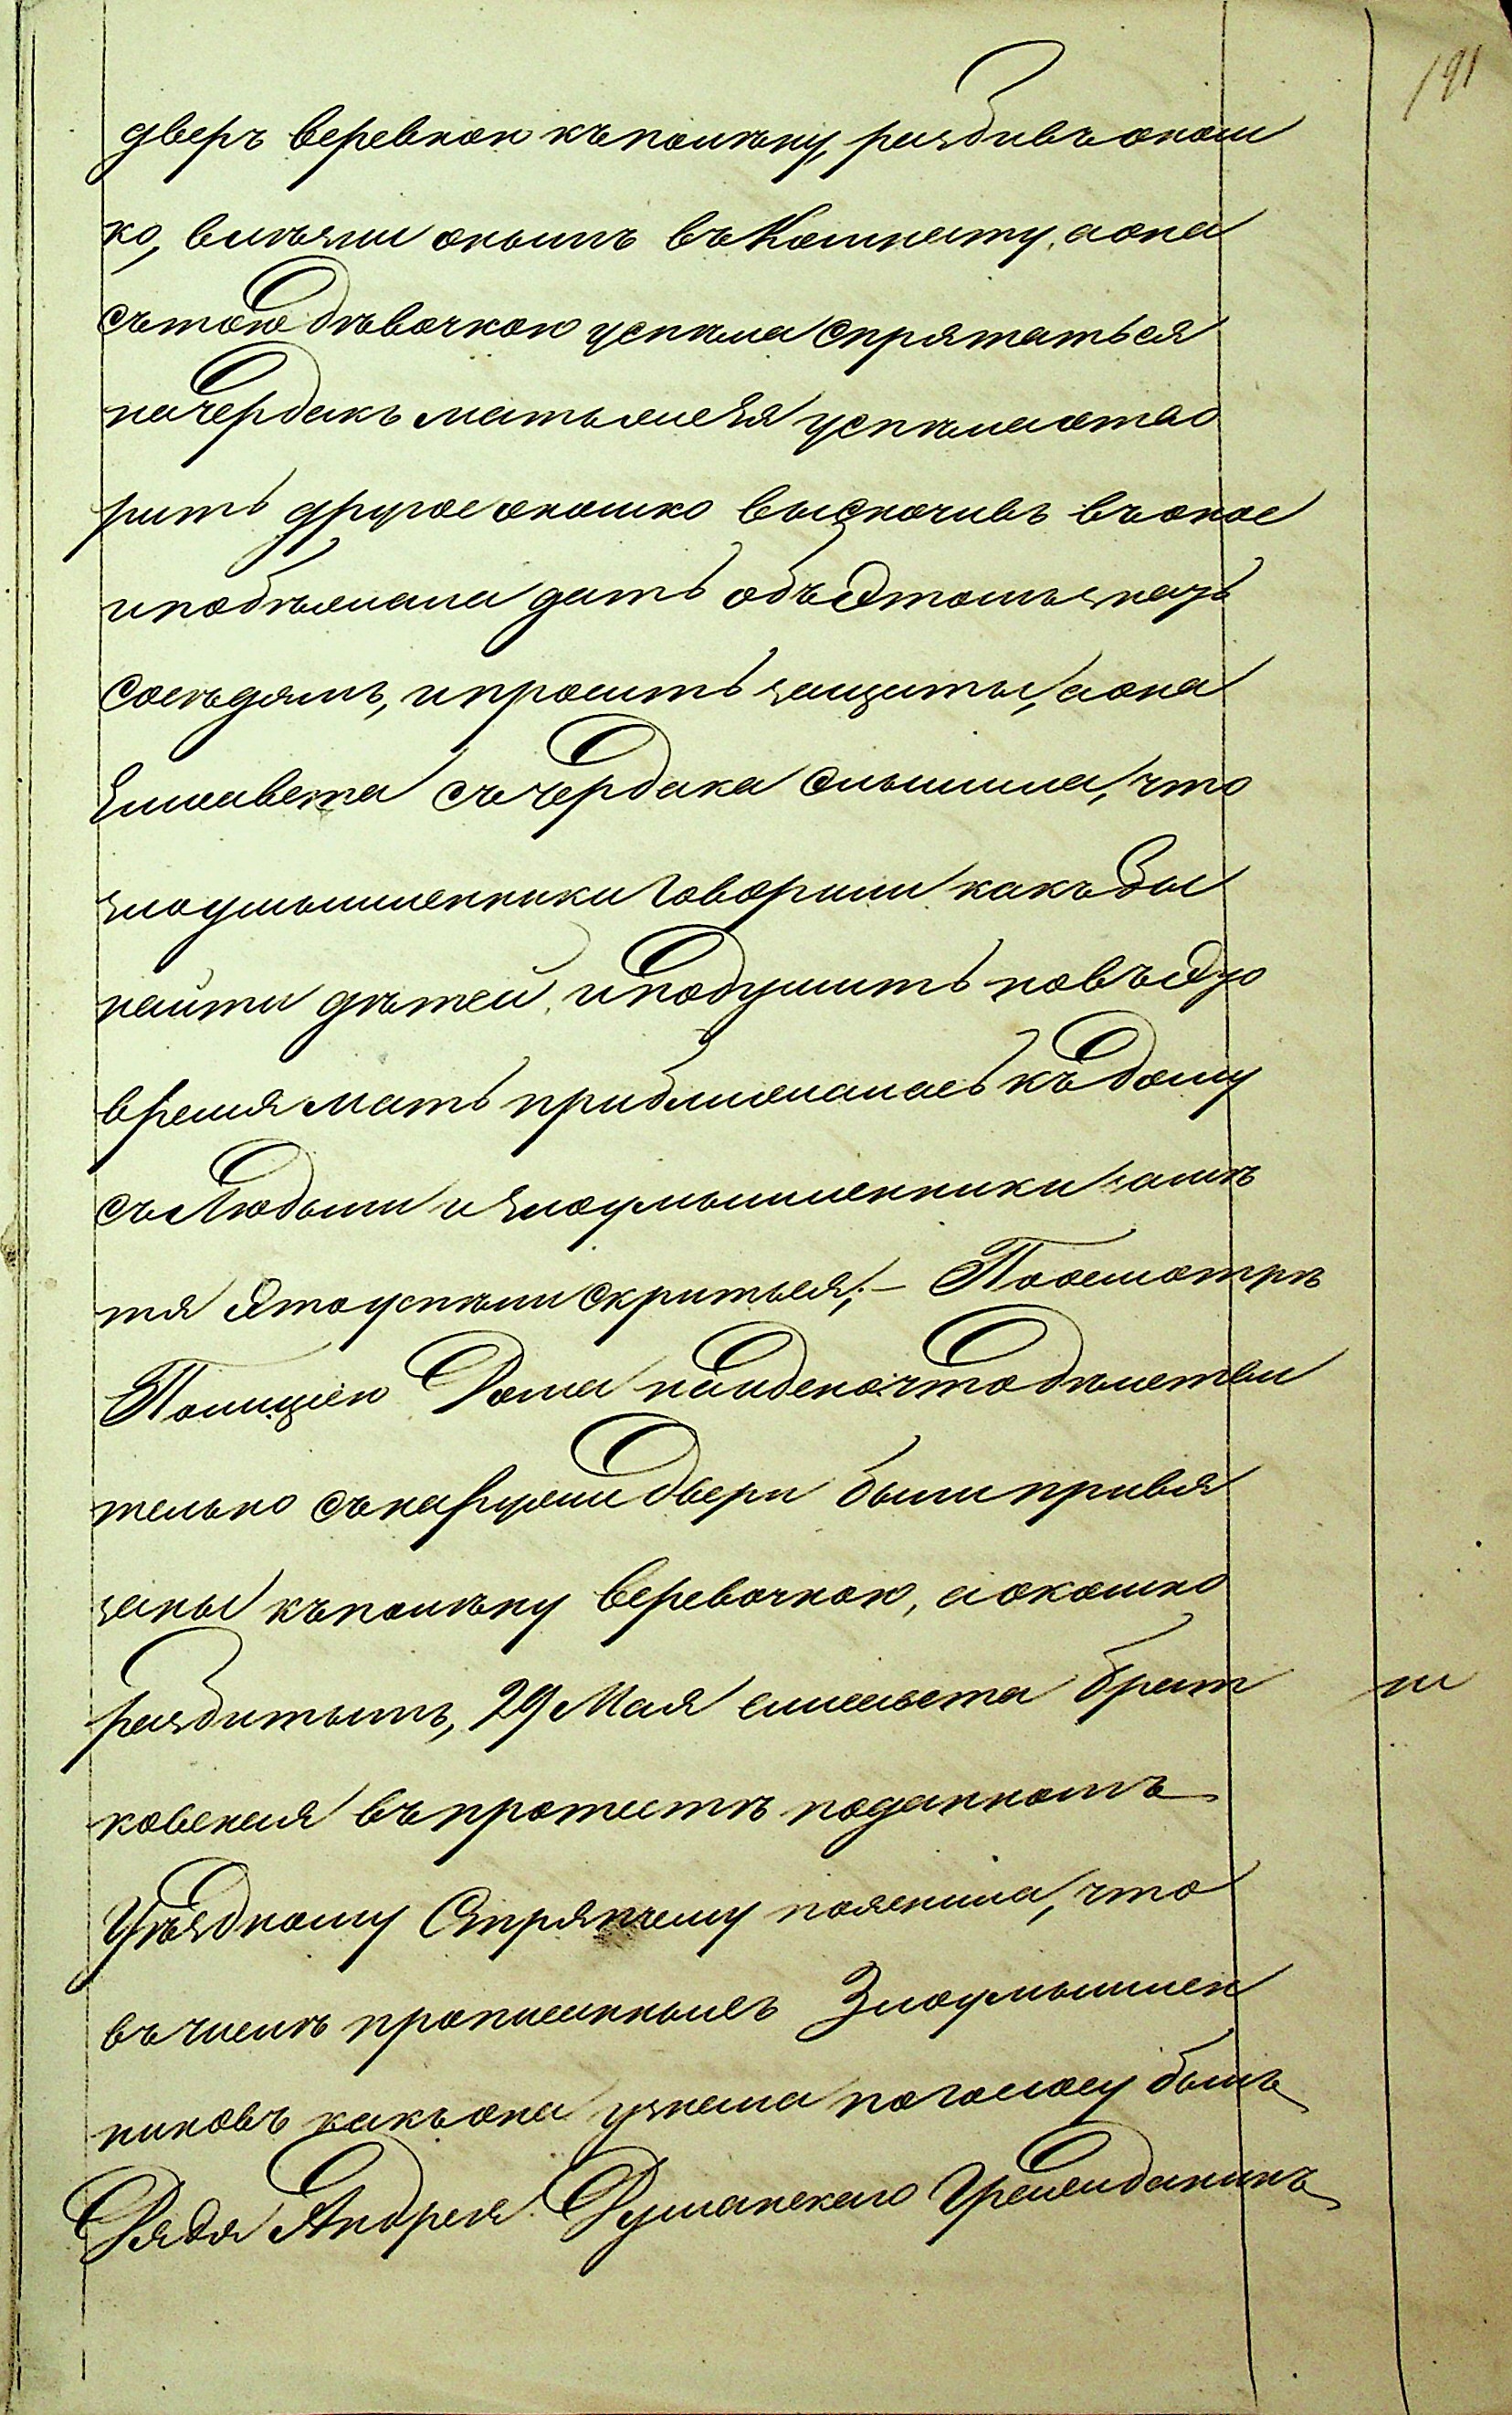 191
дверъ веревкою къ полѣну, разбивъ окош
ко, влѣзли окномъ въ Комнату, а она
съ тою дѣвочкою успѣла спрятаться
на чердакъ мать же ея успѣла отво
рить другое окошко выскочивъ въ оное
и побѣжала дать объ этомъ знать
сосѣдямъ, и просить защиты, а она
Елисавета съ чердака слышила, что
злоумышленники Говорили какъ бы
найти дѣтей, и подушить но въ это
время мать приближалась къ дому
съ Людьми и злоумышленники замѣ
тя это успѣли скриться; — По осмотрѣ
Полициею Дома найдено что дѣйстви
тельно съ наружи двери были привя
заны къ полѣну веревочкою, а окошко
разбитымъ, 29 Мая елисавета Брат
ш
ковская въ протестѣ поданномъ
Уѣздному Стряпчему пояснила, что
въ числѣ прописанныхъ Злоумышлен
никовъ какъ она узнала по голосу былъ
Дядя Андрея Думанскаго Гражданинъ